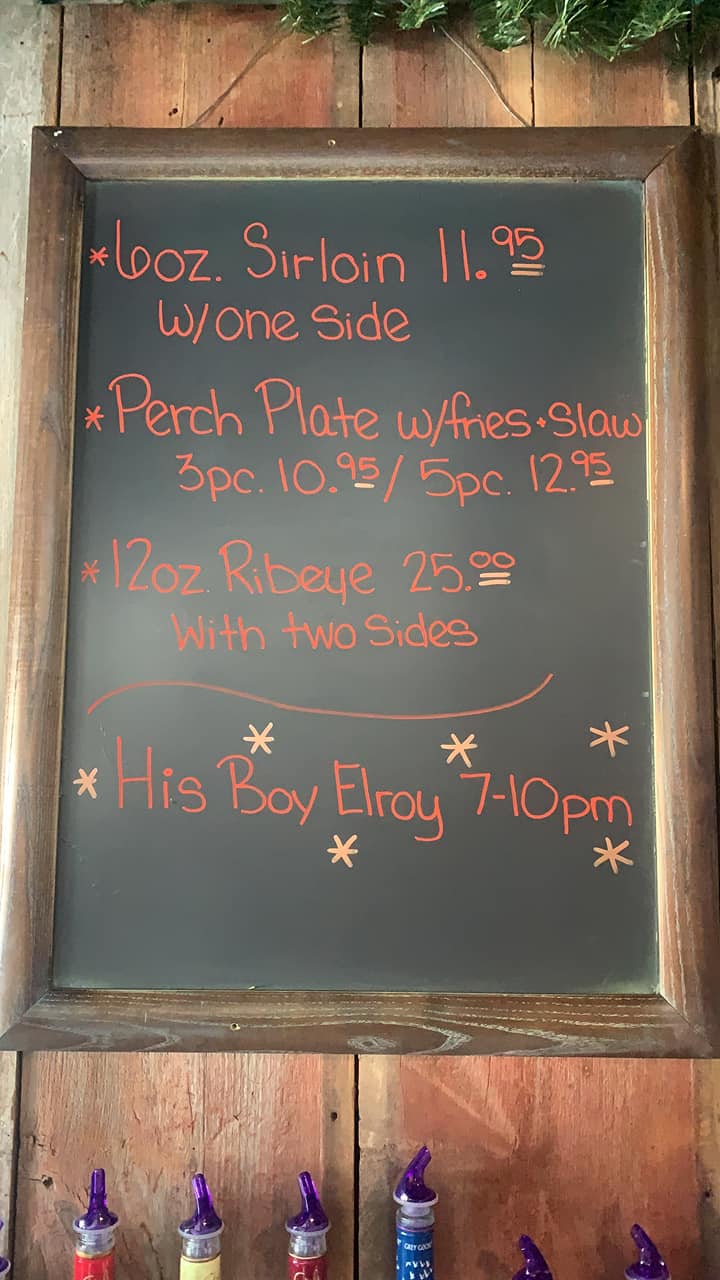 *6oz. Sirloin 11.95
w/one side
*Perch Plate w/fries+Slaw
3pc. 10.95/5pc. 12.95
*12oz. Ribeye 25.00
With two Sides
*His Boy Elroy 7-10pm
GREY GOOSE